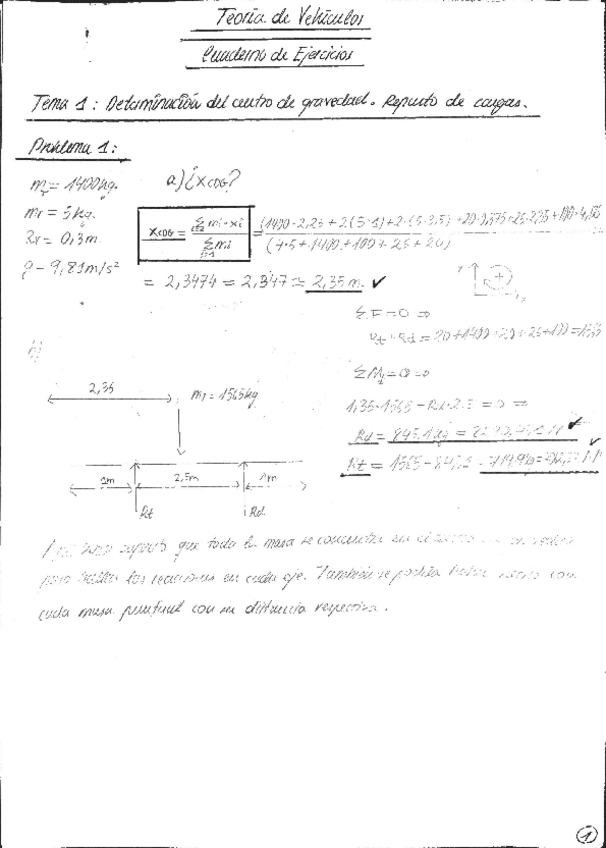 Teoría de Vehículos
Cuaderno de Ejercicios
Tema 1: Determinación del centro de gravedad. Reparto de cargas.
Problema 1:
m_T = 1400 kg.
a) ¿X_COG?
m_r = 5 kg.
R_r = 0,3 m
g = 9,81 m/s²
X_COG = Σ mi·xi / Σ mi = (1400·2,25 + 2(5·1) + 2·(5·3,5) + 20·
(4·5 + 1400 + 100 + 25 + 20)
= 2,3474 = 2,347 ≈ 2,35 m. ✓
ΣF = 0 ⇒
Rt + Rd = 20 + 1400 + 20 + 25 + 100 = 1565
b)
ΣM = 0 ⇒
2,35
m_T = 1565 kg
1,35·1565 − Rd·2.5 = 0 ⇒
Rd = 845.1 kg = ✓
Rt = 1565 − 845,1 = 719.9 kg = ✓
1m 2,5m 1m
Rt Rd
que toda la masa se concentra en el
para hallar las reacciones en cada eje. También se podría haber hecho con
cada masa puntual con su distancia respectiva.
1